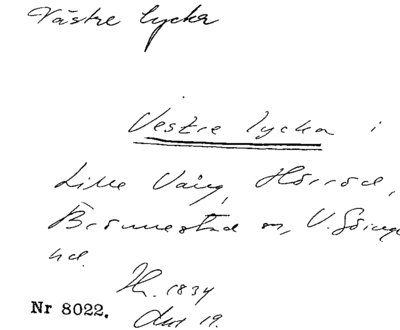 Västre lycka
Vestre lycka i
Lille Vång, Hörröd,
Brönnestad sn, V. Göinge
hd.
1834
Nr 8022.
19.